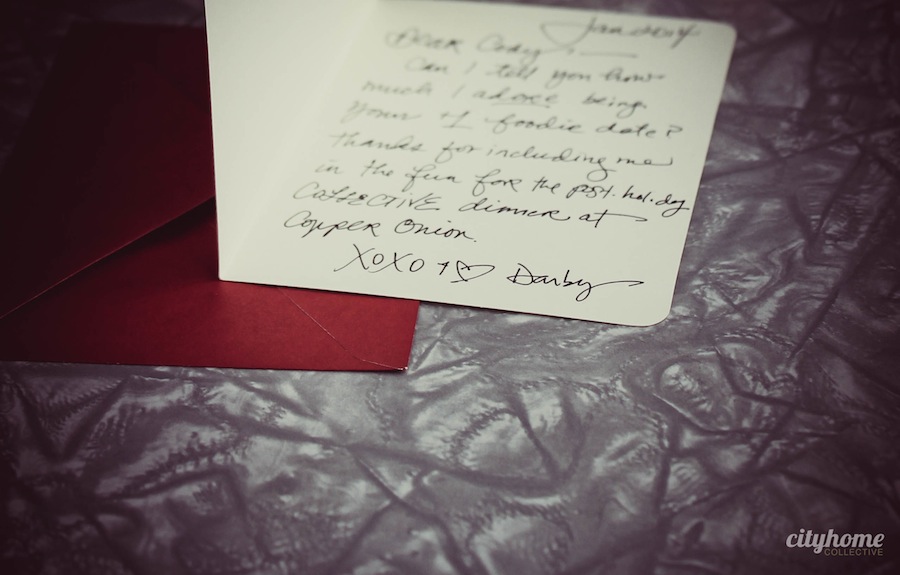 Jan 2014
Dear Cody,
Can I tell you how
much I adore being
your +1 foodie date?
Thanks for including me
in the fun for the post. holiday
COLLECTIVE dinner at
Copper Onion.
XOXO + ♡ Darby
cityhome
COLLECTIVE